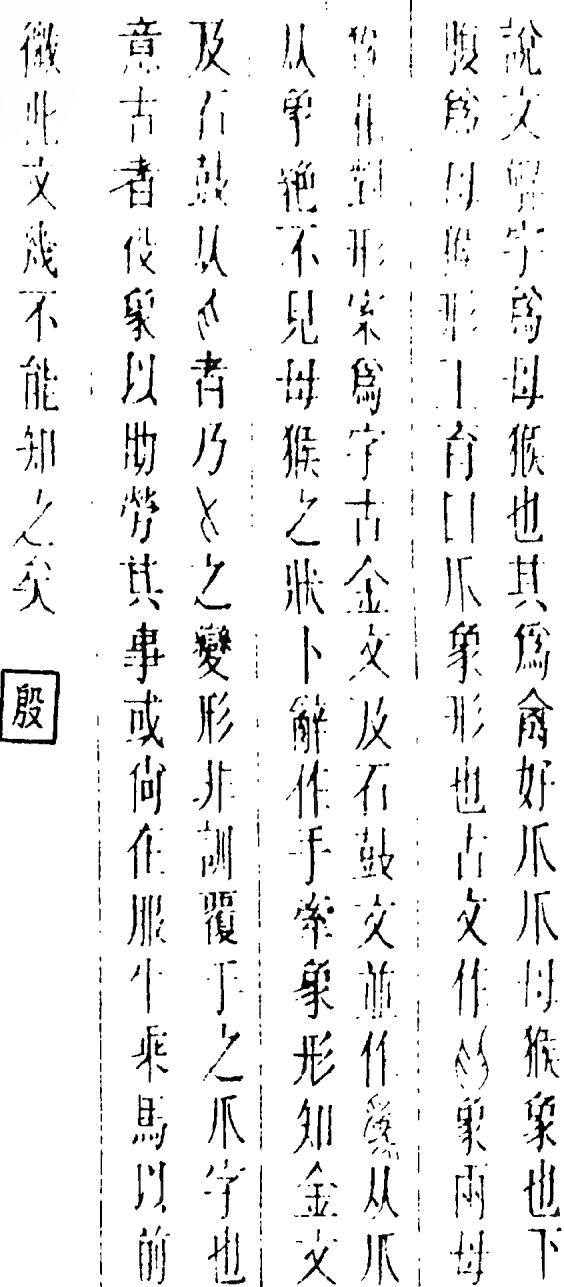 說文解字爲母猴也其爲禽好爪爪母猴象也下
腹爲母猴形王育曰爪象形也古文作象兩母
猴相對形案爲字古金文及石鼓文並作从爪
从象絕不見母猴之狀卜辭作手牽象形知金文
及石鼓从者乃之變形非訓覆手之爪字也
意古者役象以助勞其事或尚在服牛乘馬以前
微此文幾不能知之矣 殷